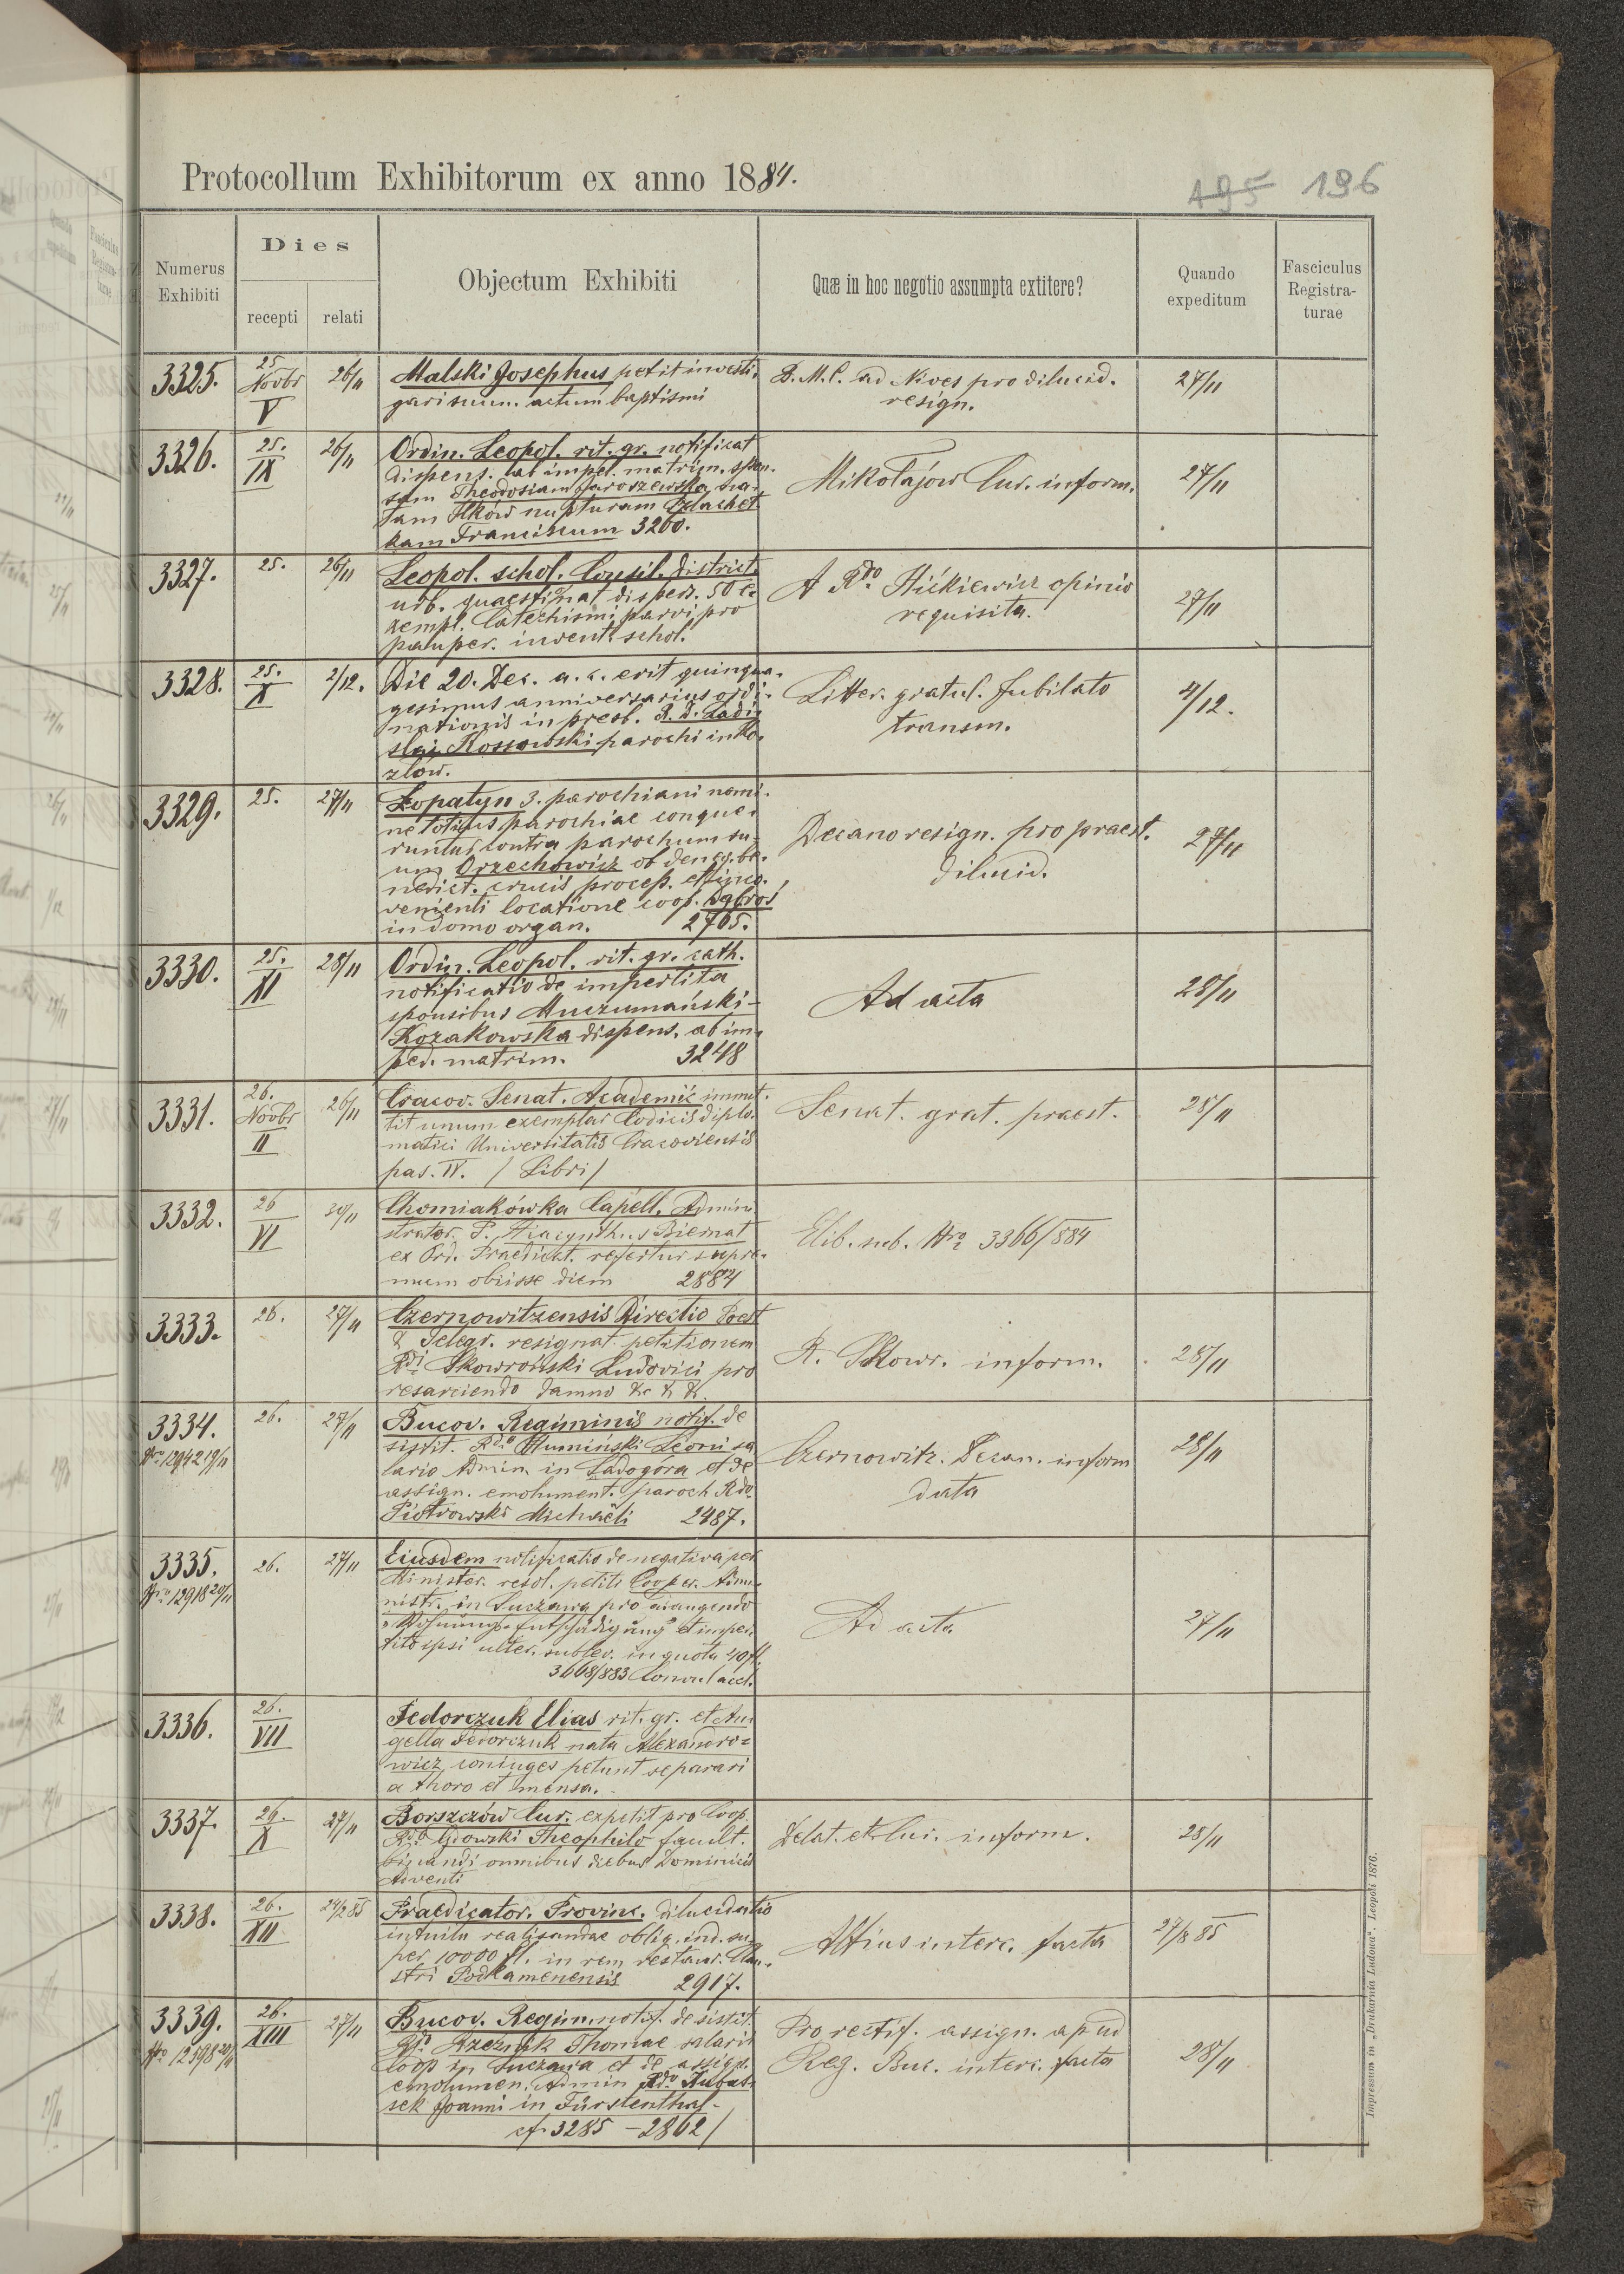 Protocollum Exhibitorum ex anno 1884.
195 196
Numerus Exhibiti
Dies
recepti
relati
Objectum Exhibiti
Quæ in hoc negotio assumpta extitere?
Quando expeditum
Fasciculus Registra-
turae
3325.
25
Novbr
V
26/11
Malski Josephus petit investi-
gari suum actum baptismi
B. M. C. ad Nives pro dilucid.
resign.
27/11
3326.
25.
IX
26/11
Ordin. Leopol. rit. gr. notificat
dispens. ab imped. matrim. spon-
sam Theodosiam Jaroszewska na-
tam Ilków nupturam
kam Franciscum 3260.
Mikołajów Cur. inform.
27/11
3327.
25.
26/11
Leopol. schol. Consil. district.
urb. quaestionat disped. 50 e-
xempl. Catechismi parvi pro
pauper. invent. schol.
A Rdo. opinio
requisita.
27/11
3328.
25.
X
2/12.
Die 20. Dec. a. c. erit quinqua-
gesimus anniversarius ordi-
nationis in presb. R. D. Ladis
slai Kossowski parochi in Ko-
złów.
Litter. gratul. Jubilato
transm.
4/12.
3329.
25.
27/11
Łopatyn 3. parochiani nomi-
ne totius parochiae conque-
runtur contra parochum su-
um Orzechowicz ob deneg. be-
nedict. crucis process. et
venienti locatione coop. Dąbroś
in domo organ. 2705.
Decano resign. pro praest.
dilucid.
27/11
3330.
25.
XI
28/11
Ordin. Leopol. rit. gr. cath.
notificatio de impertita
sponsibus Muczumański-
Kozakowska dispens. ab im-
ped. matrim. 3248
Ad acta
28/11
3331.
26.
Novbr
II
26/11
Cracov. Senat. Academic immit-
tit unum exemplar Codicis diplo-
matici Universitatis Cracoviensis
pas. IV. / Libri /
Senat. grat. praest.
28/11
3332.
26
VI
30/11
Chomiakówka Capell. Admini-
strator. P. Hiacynthus Biernat
ex Ord. Praedicat. refertur supre-
mum obiisse diem 2884
Elib. sub. Nro 3366/884
3333.
26.
27/11
Czernowitzensis Directio Post
& Telegr. resignat petitionem
Rdi Skowroński Ludovici pro
resarciendo damno & & &.
R. Skowr. inform.
28/11
3334.
Nro 12942 19/11
26.
27/11
Bucov. Regiminis notif. de
sistit. Rdo. Humiński Leoni sa
lario Admin. in Sadogóra et de
assign. emolument. paroch Rdo.
Piotrowski Michaëli 2487.
Czernowitz. Decan. inform
data
28/11
3335.
Nro 12918 20/11
26.
27/11
Eiusdem notificatio de negativa per
Minister. resol. petiti Cooper. Admi-
nistr. in Suczawa pro adaugendo
"Wohnungs-Entschädigung" et imper-
tito ipsi ulter. sublev. in quota 40 fl.
3668/883 Conwul accl.
Ad acta
27/11
3336.
26.
VII
Fedorczuk Elias rit. gr. et An
gella Fedorczuk nata Alexandro-
wicz coniuges petunt separari
a thoro et mensa.
3337.
26.
X
27/11
Borszczów Cur. expetit pro Coop.
Rdo. Theophilo facult.
binandi omnibus diebus Dominicis
Adventi
Delat. et Cur. inform.
28/11
3338.
26.
XII
24/2 85
Praedicator. Provinc. dilucidatio
intuitu realisandae oblig. ind. su-
per 10000 fl. in rem restaur. Clau-
stri Podkamenensis 2917.
Altius interc. facta
27/8 85
3339.
Nro 12598 20/11
26.
XIII
27/11
Bucov. Regim. notif. de sistit.
Rdo. Rzeznik Thomae salario
Coop in Suczawa et de assign.
emolumen. Admin Rdo.
sek Joanni in Fürstenthal-
cf. 3285 - 2862 /
Pro rectif. assign. apud
Reg. Buc. interc. facta
28/11
Impressum in „Drukarnia Ludowa". Leopoli 1876.